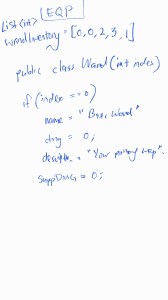 EQP
List<int>
WandInventory = [0,0,2,3,1]
public class Wand(int index)
if (index == 0)
name = "Basic Wand"
dmg = 0;
descrip = "Your primary wep".
suppDmG = 0;